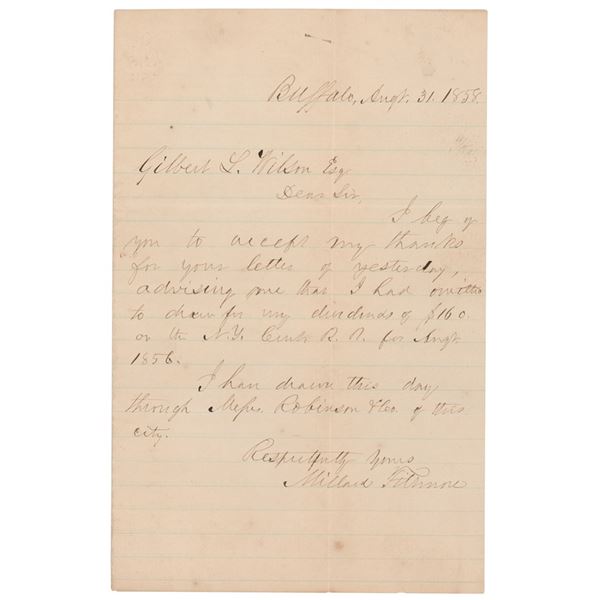 Buffalo, Augt. 31. 1858.
Gilbert L. Wilson Esq
Dear Sir,
I beg of
you to accept my thanks
for your letter of yesterday,
advising me that I had omitted
to draw for my dividends of $160
on the N.Y. Cent. R. R. for Augt
1856.
I have drawn this day
through Messrs. Robinson & Co. of this
city.
Respectfully Yours
Millard Fillmore